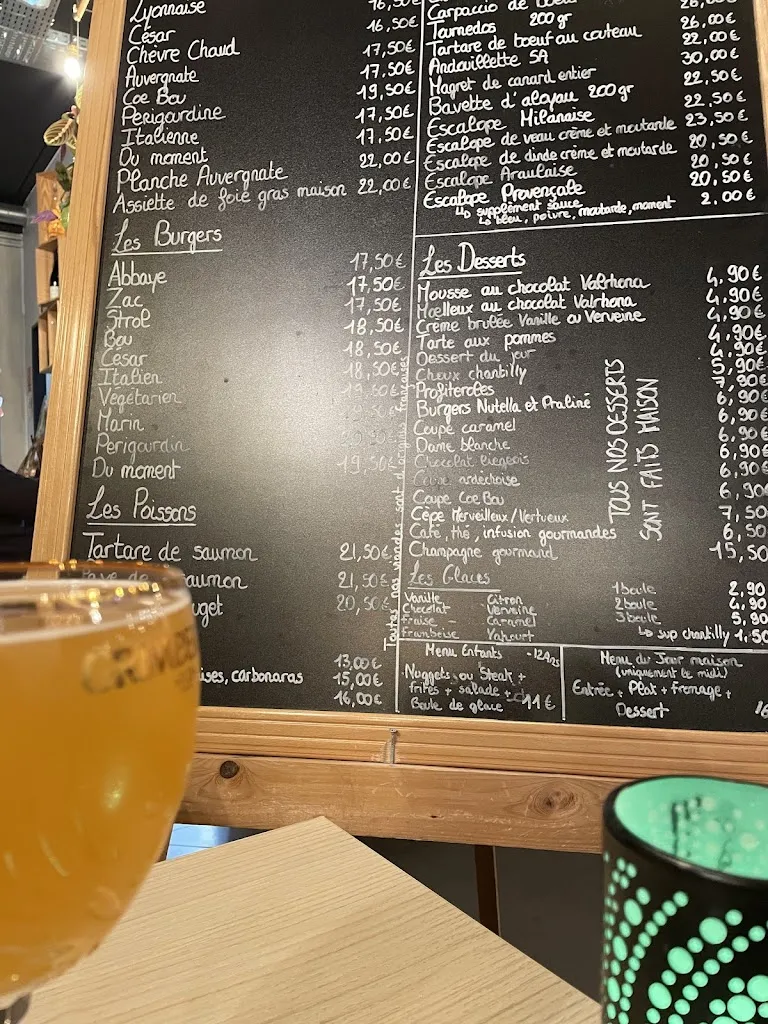 Lyonnaise
César 16,50€
Chèvre Chaud 17,50€
Auvergnate 17,50€
Coe Bou 19,50€
Perigourdine 17,50€
Italienne 17,50€
Du moment 22,00€
Planche Auvergnate 22,00€
Assiette de foie gras maison
Les Burgers
Abbaye 17,50€
Zac 17,50€
Strol 17,50€
Bou 18,50€
César 18,50€
Italien 18,50€
Végétarien
Marin
Perigourdin
Du moment 19,50€
Les Poissons
Tartare de saumon 21,50€
saumon 21,50€
20,50€
13,00€
ises, carbonaras 15,00€
16,00€
Toutes nos viandes sont d'origines françaises
Carpaccio de boeuf
Tournedos 200gr 26,00€
Tartare de boeuf au couteau 22,00€
Andouillette 5A 30,00€
Magret de canard entier 22,50€
Bavette d'aloyau 200gr 22,50€
Escalope Milanaise 23,50€
Escalope de veau crème et moutarde 20,50€
Escalope de dinde crème et moutarde 20,50€
Escalope Araulaise 20,50€
Escalope Provençale 2.00€
↳ supplément sauce
↳ bleu, poivre, moutarde, moment
Les Desserts
Mousse au chocolat Valrhona 4,90€
Moelleux au chocolat Valrhona 4,90€
Crème brulée Vanille ou Verveine 4,90€
Tarte aux pommes 4,90€
Dessert du jour 5,90€
Choux chantilly 7,90€
Profiteroles 6,90€
Burgers Nutella et Praliné 6,90€
Coupe caramel 6,90€
Dame blanche 6,90€
Chocolat liégeois 6,90€
Coupe ardéchoise
Coupe Coe Bou 6,90€
Cèpe Merveilleux/Vertueux 7,50
Café, thé, infusion gourmandes 6,50
Champagne gourmand 15,50
TOUS NOS DESSERTS
SONT FAITS MAISON
Les Glaces
Vanille - Citron 1 boule 2,90
Chocolat - Verveine 2 boule 4,90
fraise - Caramel 3 boule 5,90
framboise Yahourt ↳ sup chantilly 1,50
Menu Enfants -12ans
Nuggets ou Steak +
frites + salade +
Boule de glace 11€
Menu du Jour maison
(uniquement le midi)
Entrée + Plat + fromage +
Dessert